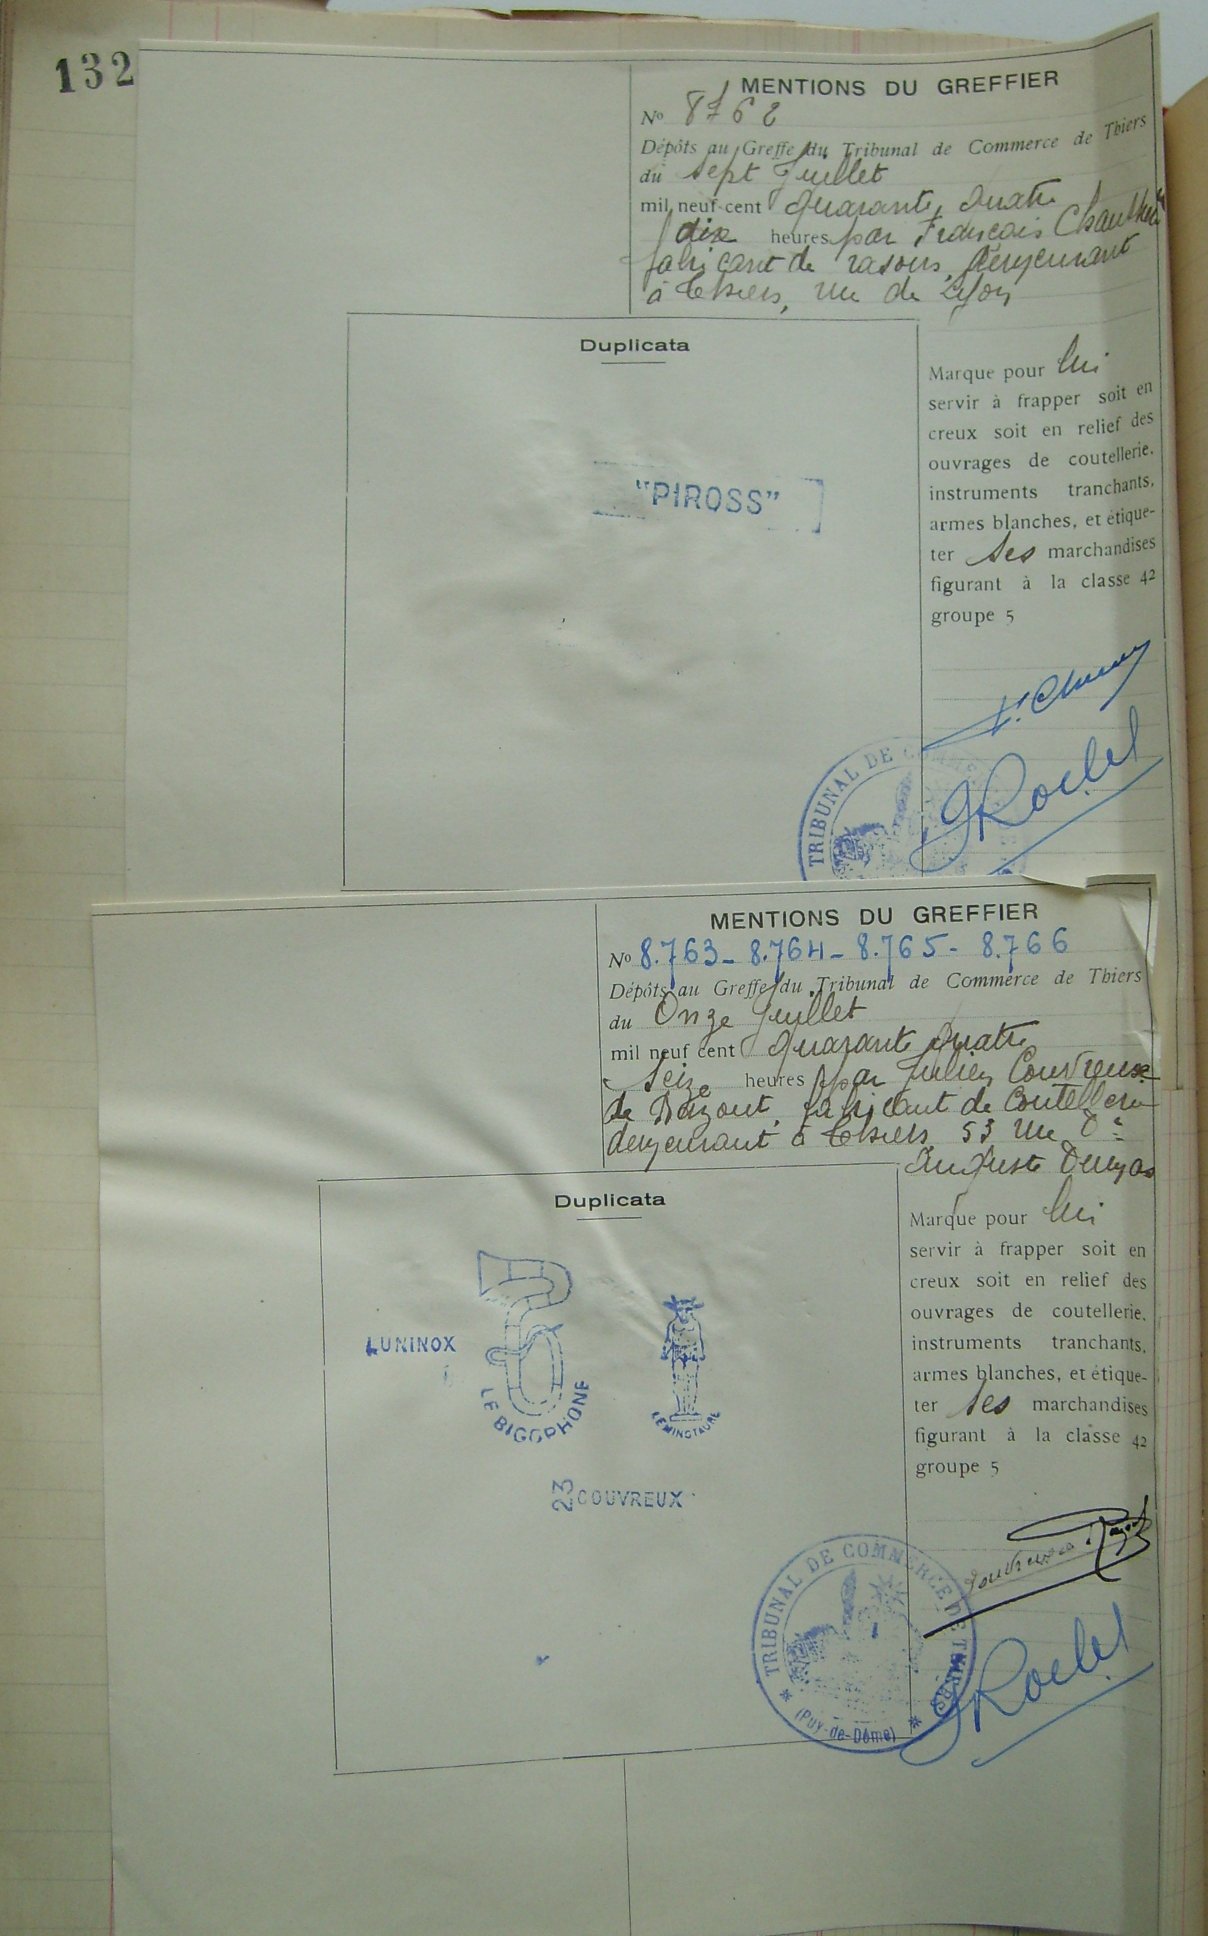 132
MENTIONS DU GREFFIER
No 8762
Dépôts au Greffe du Tribunal de Commerce de Thiers
du sept Juillet
mil neuf cent quarante quatre
dix heures par François
fabricant de rasoirs, demeurant
à Thiers, rue de Lyon
Duplicata
"PIROSS"
Marque pour lui
servir à frapper soit en
creux soit en relief des
ouvrages de coutellerie,
instruments tranchants,
armes blanches, et étique-
ter ses marchandises
figurant à la classe 42
groupe 5
TRIBUNAL DE COMME
MENTIONS DU GREFFIER
No 8.763 - 8.764 - 8.765 - 8.766
Dépôts au Greffe du Tribunal de Commerce de Thiers
du Onze Juillet
mil neuf cent quarante quatre
Seize heures par Julien Couvreux
de fabricant de Coutellerie
demeurant à Thiers 53 rue Dr
Auguste Dumas
Duplicata
LUNINOX
LE BIGOPHONE
LE MINOTAURE
23 COUVREUX
Marque pour lui
servir à frapper soit en
creux soit en relief des
ouvrages de coutellerie,
instruments tranchants,
armes blanches, et étique-
ter ses marchandises
figurant à la classe 42
groupe 5
TRIBUNAL DE COMMERCE DE THIERS
(Puy-de-Dôme)